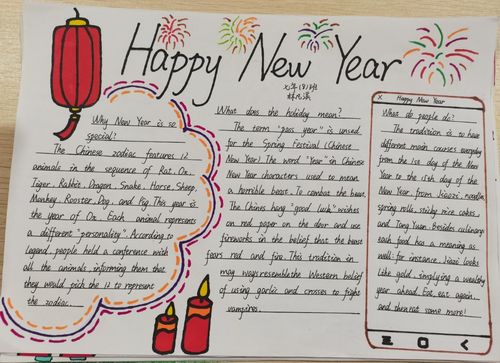 Happy New Year
七年(8)班
Why New Year is so
special?
The Chinese zodiac features 12
animals in the sequence of Rat. Ox.
Tiger. Rabbit. Dragon. Snake. Horse. Sheep.
Monkey. Rooster. Dog. and Pig. This year is
the year of Ox. Each animal represents
a different "personality". According to
legend, people held a conference with
all the animals informing them that
they would pick the 12 to represent
the zodiac.
What does the holiday mean?
The term "pass year" is unsed
for the Spring Festival (Chinese
New Year). The word "Year" in Chinese
New Year characters used to mean
a horrible beast. To combat the beast,
The Chines hang "good luck" wishes
on red paper on the door and use
fireworks in the belief that the beast
fears red and fire. This tradition in
may ways resemblethe Western belief
of using garlic and crosses to fight
vampires.
× Happy New Year
What do people do?
The tradition is to have
different main courses everyday
from the 1st day of the New
Year to the 15th day of the
New Year. from Jiaozi, noodles,
spring rolls, sticky rice cakes,
and Tang Yuan. Besides culinary
each food has a meaning as
well: for instance. Jiaozi looks
like gold. singlyfying a wealthy
year ahead. Eat, eat again..
and then eat some more!